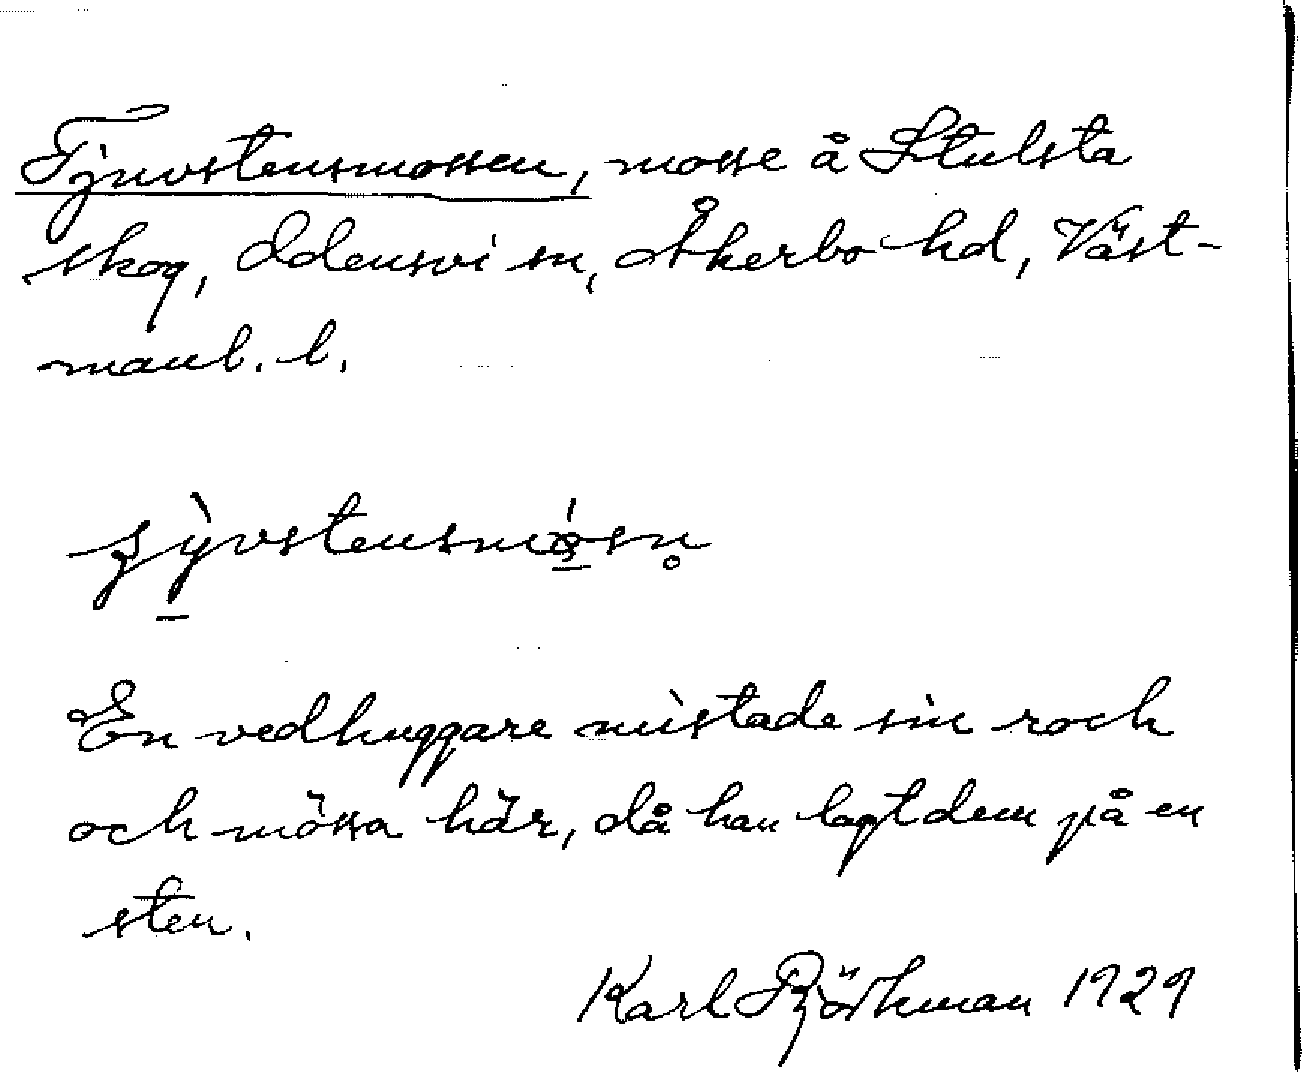 Tjuvstensmossen, mosse å Stulsta
skog, Odensvi sn, Åkerbo hd, Väst-
manl. l.
En vedhuggare mistade sin rock
och mössa här, då han lagt dem på en
sten.
Karl Björkman 1929